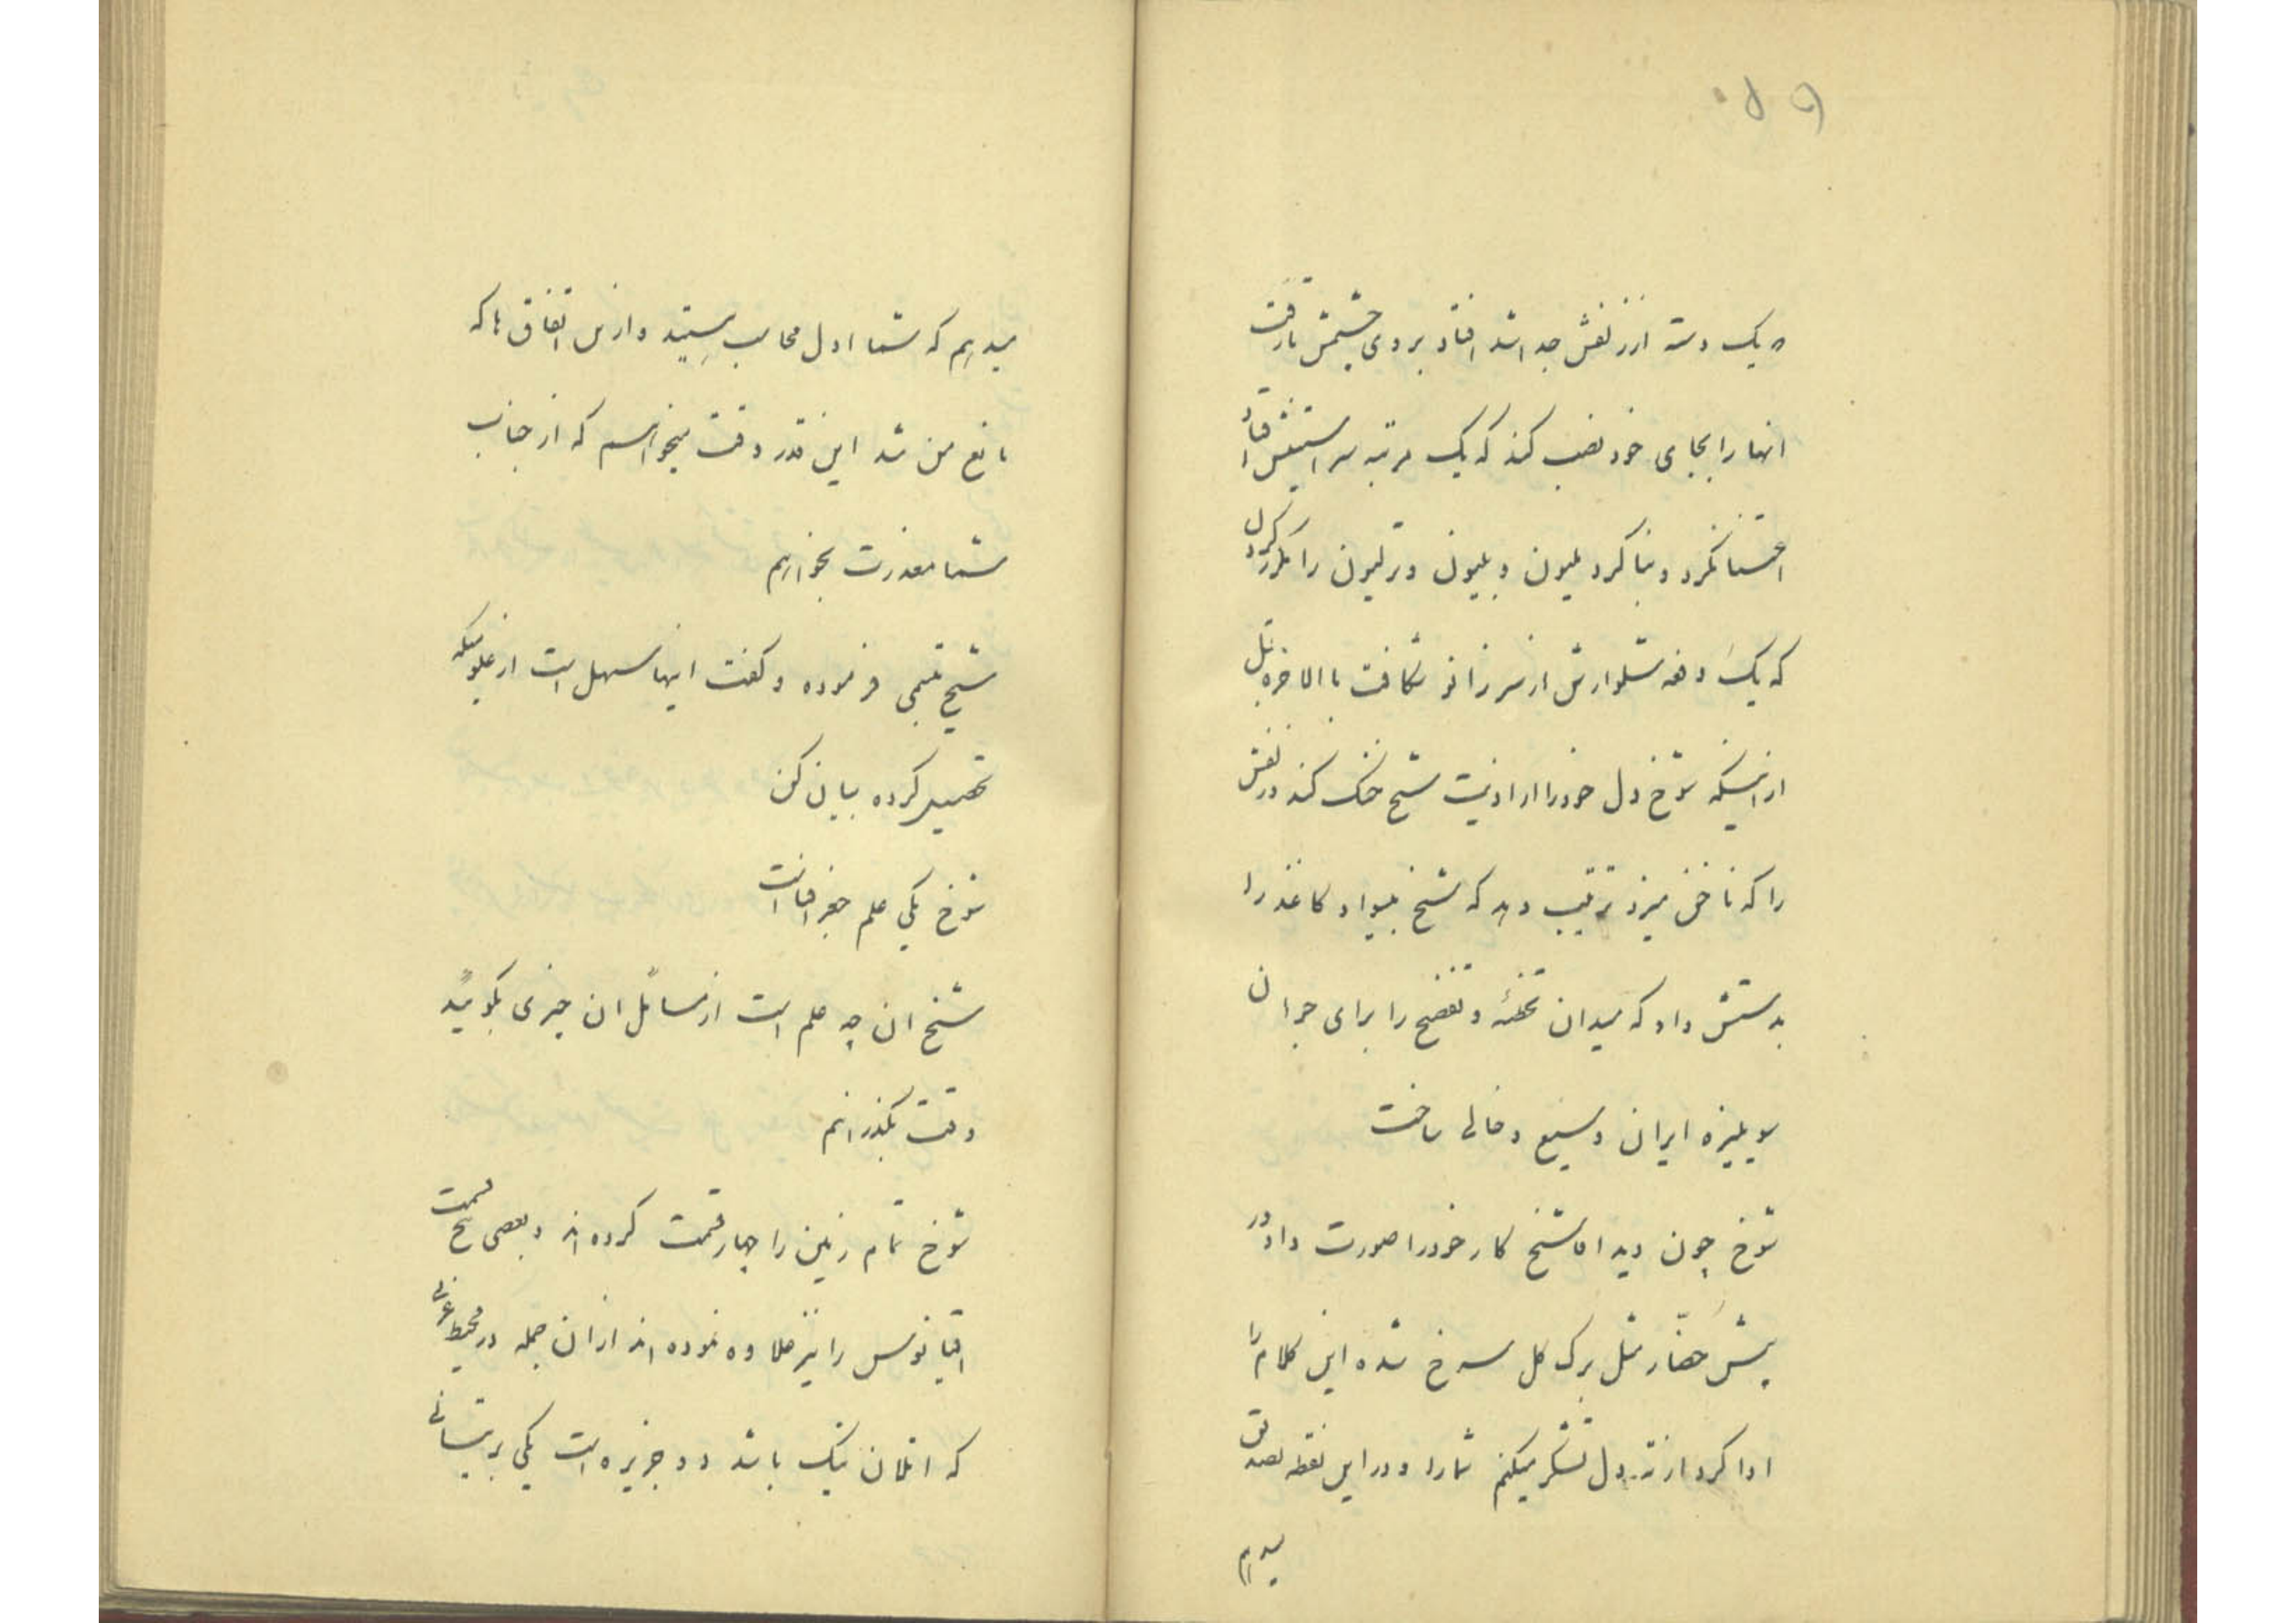 یک دسته از زلفش جدا شد افتاد بروی چشمش تا رفت
انها را بجای خود نصب کند که یک مرتبه سر استینش افتاد
اعتنا نکرد و بنا کرد ملیون و بلیون و ترلیون را مکرر کردن
که یک دفعه شلوارش از سر زانو شکافت بالاخره قبل
از اینکه شوخ دل خود را از اذیت شیخ خنک کند و زلفش
را که ناخن میزد ترتیب دهد که شیخ بیسواد کاغذ را
بدستش داد که میدان تخطئه و تفضیح را برای جوانان
سویلیزه ایران وسیع و خالی ساخت
شوخ چون دید اقا شیخ کار خود را صورت داد و در
پیش حضّار مثل برک کل سرخ شده این کلام را
ادا کرد از ته دل تشکر میکنم شما را و در این نقطه تصدیق
میدهم
میدهم که شما اول محاسب هستید و از این اتفاق ها که
مانع من شد این قدر وقت میخواهم که از جناب
شما معذرت بخواهم
شیخ تبسمی فرموده و کفت اینها سهل است از علومیکه
تحصیل کرده بیان کن
شوخ یکی علم جغرافیا است
شیخ ان چه علم است از مسائل ان چیزی بکوئید
وقت بکذرانیم
شوخ تمام زمین را چهار قسمت کرده اند و بعضی پنج قسمت
اقیانوس را نیز علاوه نموده اند از ان جمله در محیط غربی
که اتلان تیک باشد دو جزیره است یکی بریتانی